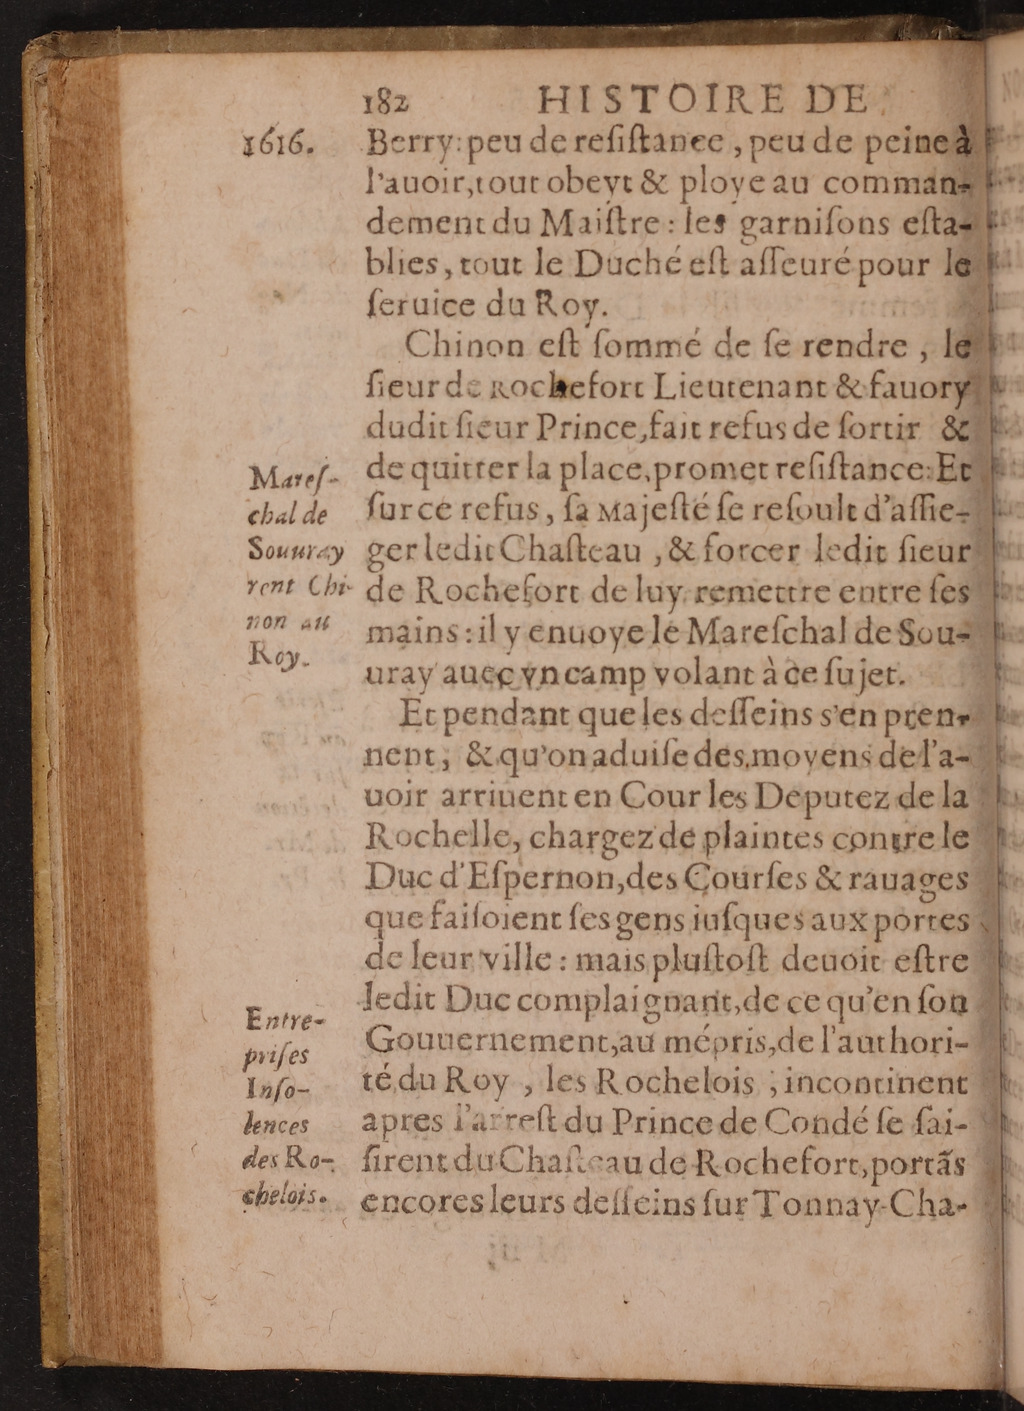 182 HISTOIRE DE
1616.
Berry: peu de reſiſtance, peu de peine à
l'auoir, tout obeyt & ploye au comman-
dement du Maiſtre: les garniſons eſta-
blies, tout le Duché eſt aſſeuré pour le
ſeruice du Roy.
Chinon eſt ſommé de ſe rendre, le
ſieur de Rochefort Lieutenant & fauory
dudit ſieur Prince, fait refus de ſortir &
de quitter la place, promet reſiſtance: Et
ſur ce refus, ſa Majeſté ſe reſoult d'aſſie-
ger ledit Chaſteau, & forcer ledit ſieur
de Rochefort de luy remettre entre ſes
mains: il y enuoye le Mareſchal de Sou-
uray auec vn camp volant à ce ſujet.
Mareſ-
chal de
Souuray
rent Chi-
non au
Roy.
Et pendant que les deſſeins s'en pren-
nent, & qu'on aduiſe des moyens de l'a-
uoir arriuent en Cour les Deputez de la
Rochelle, chargez de plaintes contre le
Duc d'Eſpernon, des Courſes & rauages
que faiſoient ſes gens iuſques aux portes
de leur ville: mais pluſtoſt deuoit eſtre
ledit Duc complaignant, de ce qu'en ſon
Gouuernement, au mépris, de l'authori-
té du Roy, les Rochelois, incontinent
apres l'arreſt du Prince de Condé ſe ſai-
ſirent du Chaſteau de Rochefort, portãs
encores leurs deſſeins ſur Tonnay-Cha-
Entre-
priſes
Inſo-
lences
des Ro-
chelois.